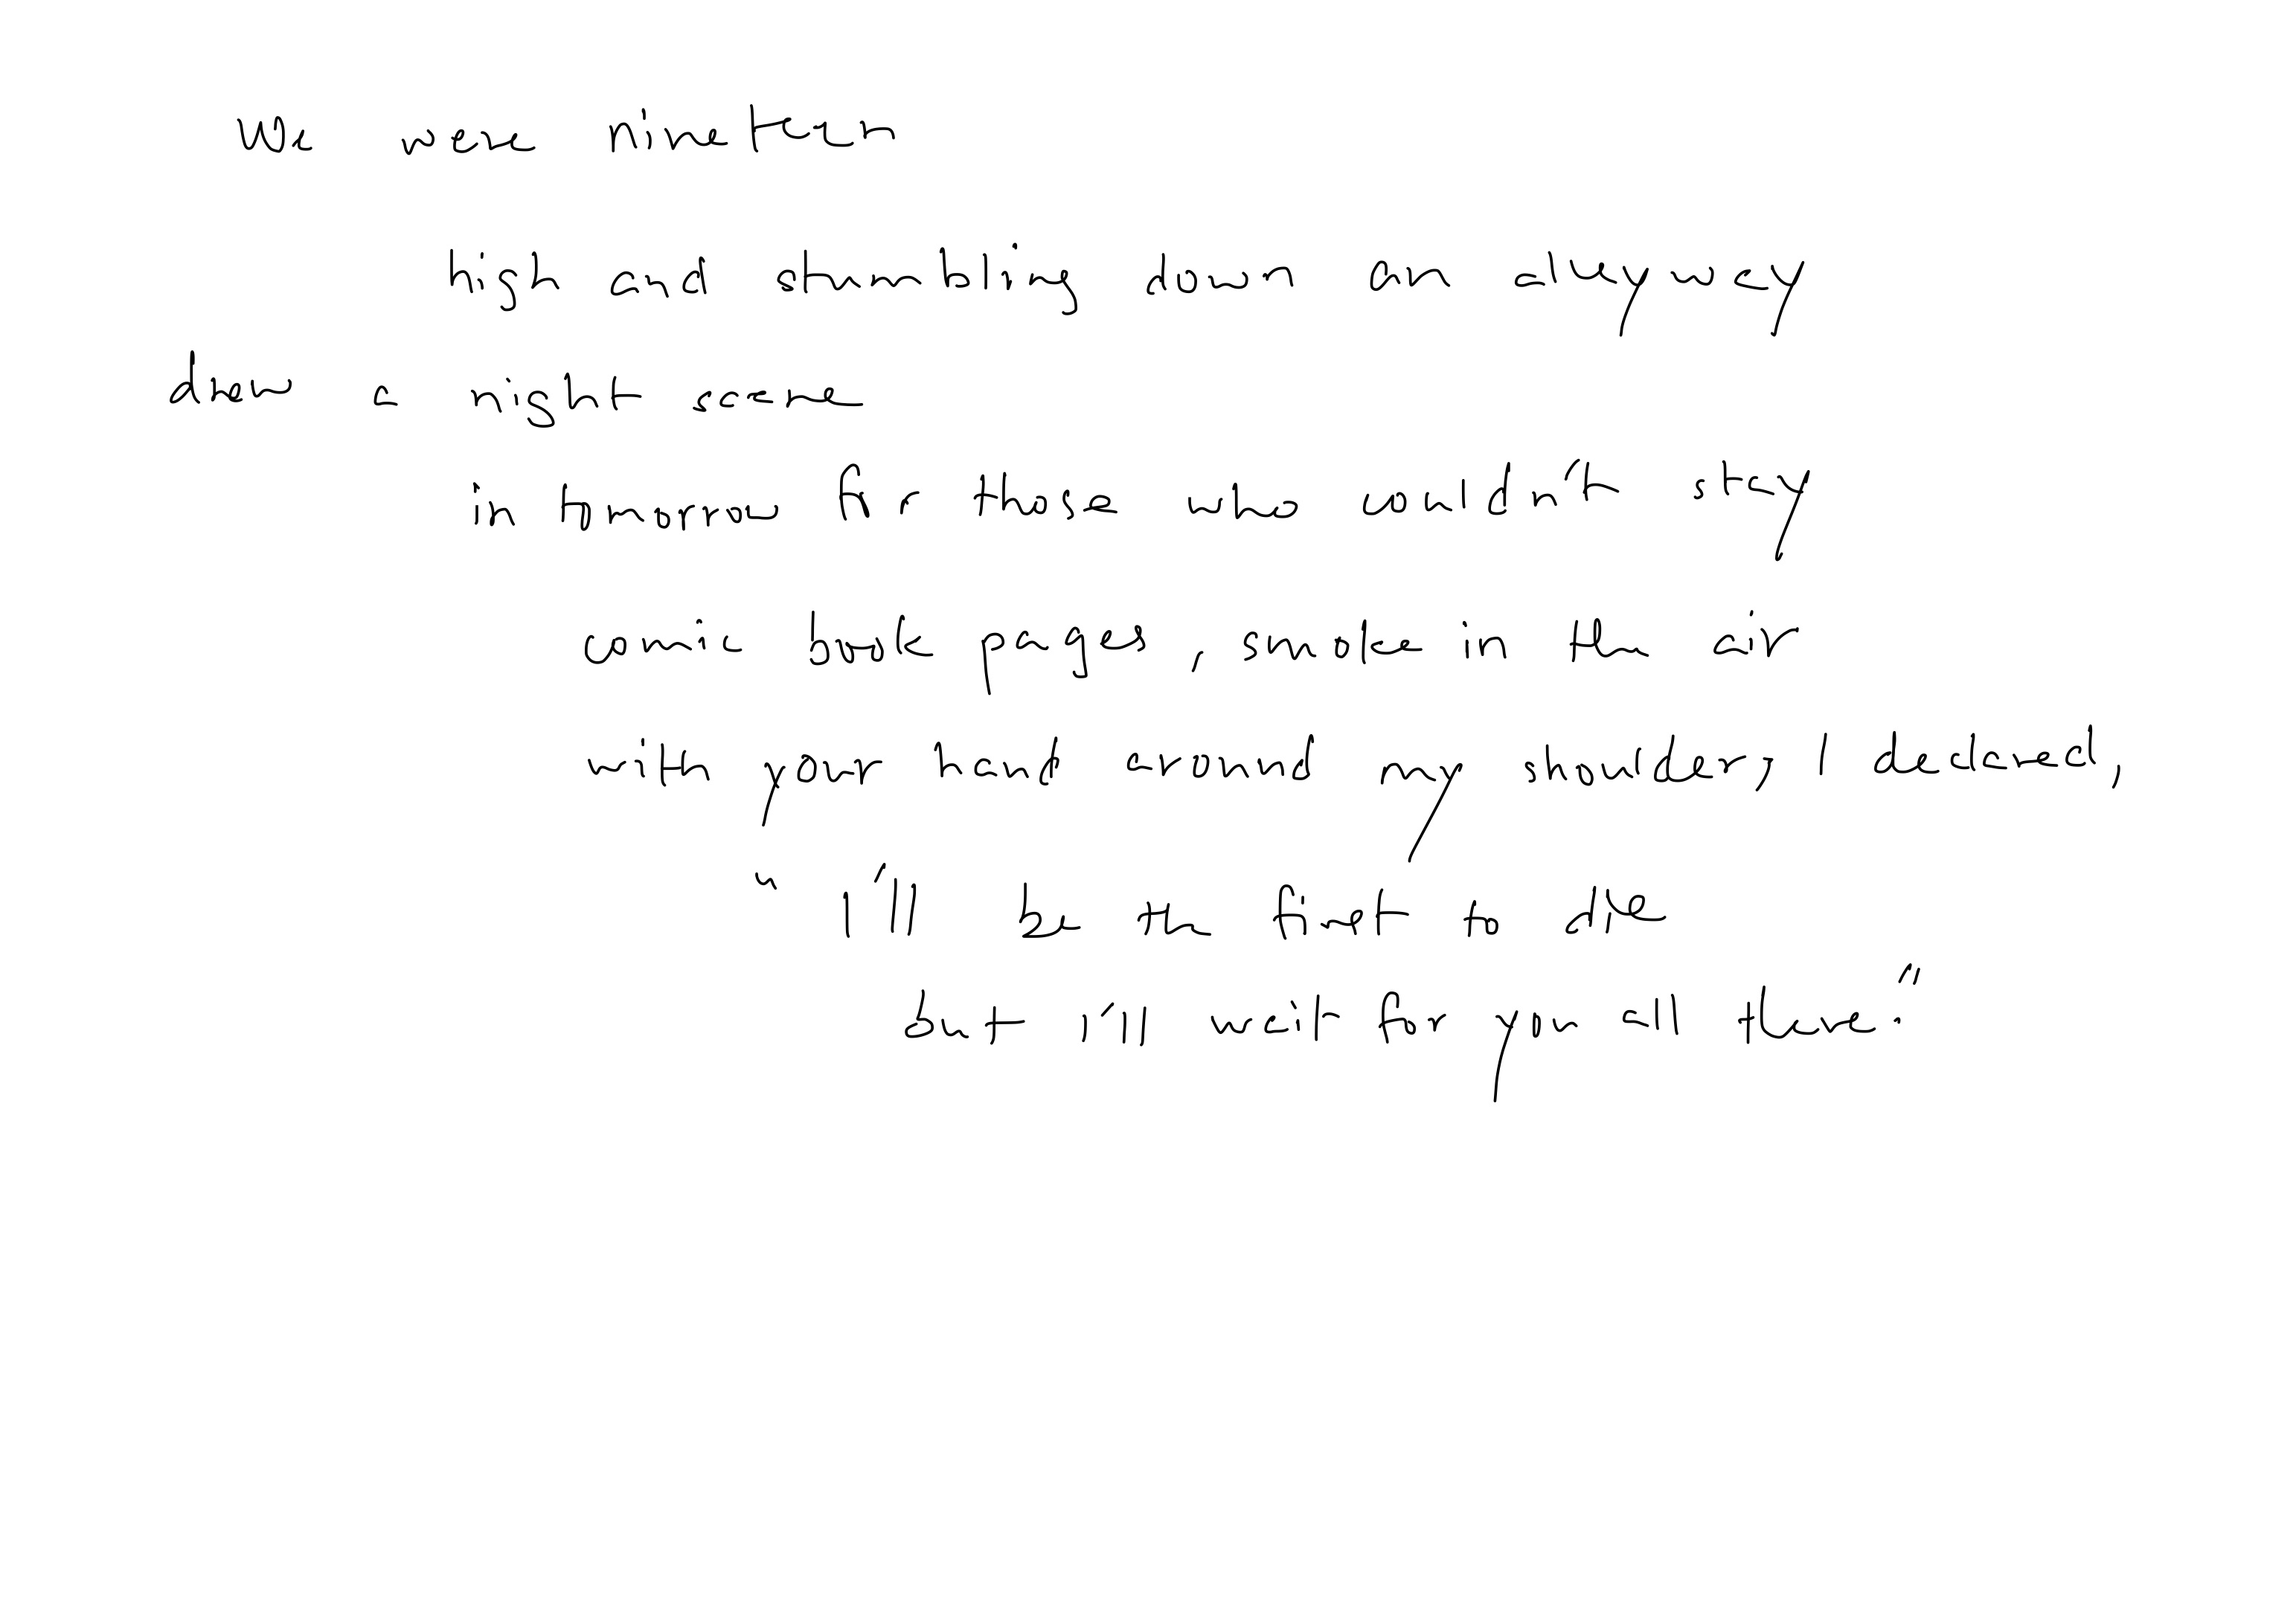 We were nineteen
high and stumbling down an alleyway
drew a night scene
in tomorrow for those who couldn't stay
comic book pages, smoke in the air
with your hand around my shoulder, I declared,
"I'll be the first to die
but I'll wait for you all there."